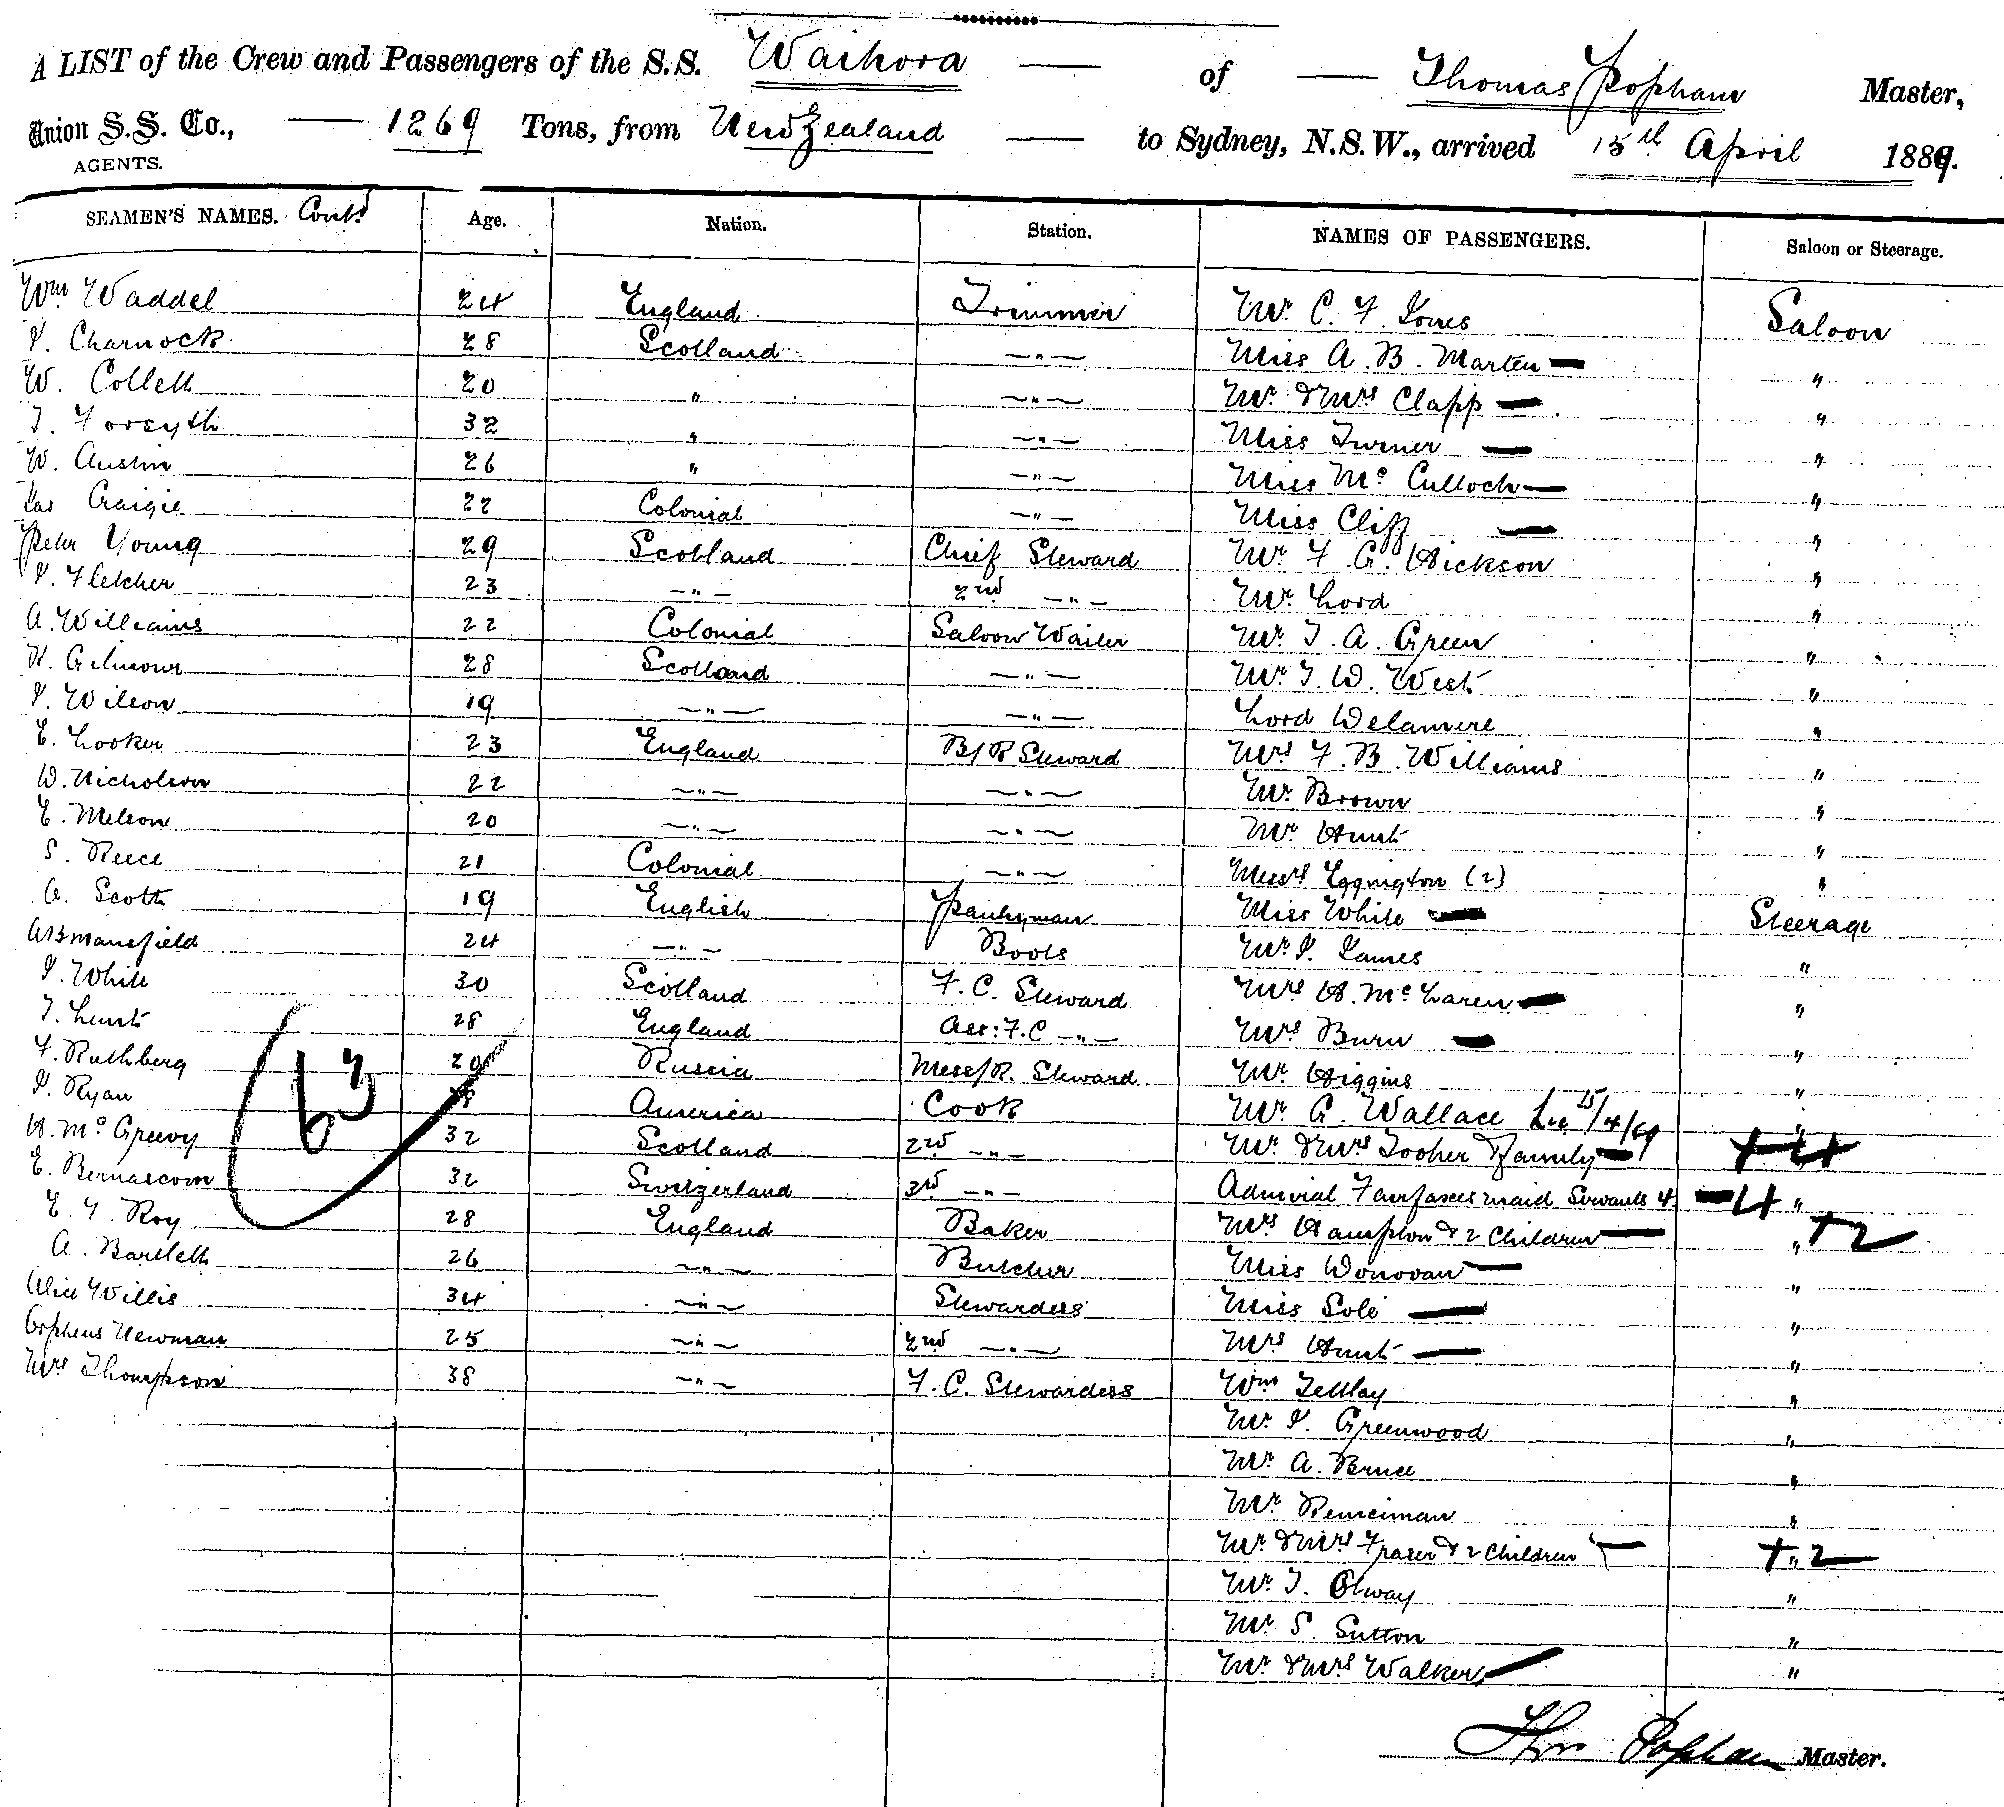 A LIST of the Crew and Passengers of the S.S. Waihora — of — Thomas Popham Master,
Union S.S. Co., — 1269 Tons, from New Zealand — to Sydney, N.S.W., arrived 15th April 1889.
AGENTS.
SEAMEN'S NAMES. Contd Age. Nation. Station. NAMES OF PASSENGERS. Saloon or Steerage.
Wm Waddel 24 England Trimmer Mr C. F. Jones Saloon
J. Charnock 28 Scotland —"— Miss A. B. Marten "
W. Collett 20 " —"— Mr & Mrs Clapp "
T. Forsyth 32 " —"— Miss Turner "
W. Austin 26 " —"— Miss McCulloch "
Jas Craigie 22 Colonial —"— Miss Cliff "
Peter Young 29 Scotland Chief Steward Mr F. G. Hickson "
J. Fletcher 23 —"— 2nd —"— Mr Lord "
A. Williams 22 Colonial Saloon Waiter Mr T. A. Green "
H. Gilmour 28 Scotland —"— Mr T. W. West "
J. Wilson 19 —"— —"— Lord Delamere "
E. Looker 23 England B/R Steward Mrs F. B. Williams "
W. Nicholson 22 —"— —"— Mr Brown "
E. Melson 20 —"— —"— Mr Hunt "
S. Reece 21 Colonial —"— Messrs Eggington (2) "
A. Scott 19 English Pantryman Miss White Steerage
A B Mansfield 24 —"— Boots Mr J. James "
J. White 30 Scotland F. C. Steward Mrs H. McLaren "
T. Lunt 28 England Ass: F.C —"— Mrs Burn "
F. Ruthberg 20 Russia Mess/R. Steward Mr Higgins "
J. Ryan America Cook Mr G. Wallace 15/4/89 "
H. McGreevy 32 Scotland 2nd —"— Mr & Mrs Tooher & Family +4
E. Bernascom 32 Switzerland 3rd —"— Admiral Fairfaxes maid Servants 4 4 "
E. F. Roy 28 England Baker Mrs Hampton & 2 Children " +2
A. Bartlett 26 —"— Butcher Miss Donovan "
Alice Willis 34 —"— Stewardess Miss Sole "
Orpheus Newman 25 —"— 2nd —"— Mrs Hunt "
Mrs Thompson 38 —"— F. C. Stewardess Wm Tetlay "
63
Mr J. Greenwood "
Mr A. Bruce "
Mr Renseiman "
Mr & Mrs Fraser & 2 Children + " 2
Mr T. Olway "
Mr S. Sutton "
Mr & Mrs Walker "
Thos Popham Master.